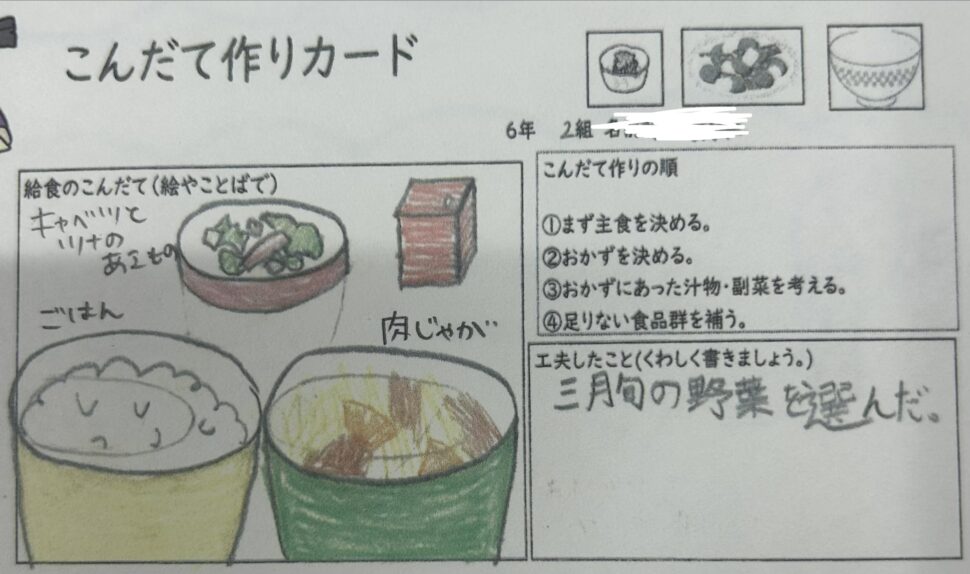 こんだて作りカード
6年 2組
給食のこんだて(絵やことばで)
キャベツと
ツナの
あえもの
ごはん
肉じゃが
こんだて作りの順
①まず主食を決める。
②おかずを決める。
③おかずにあった汁物・副菜を考える。
④足りない食品群を補う。
工夫したこと(くわしく書きましょう。)
三月旬の野菜を選んだ。